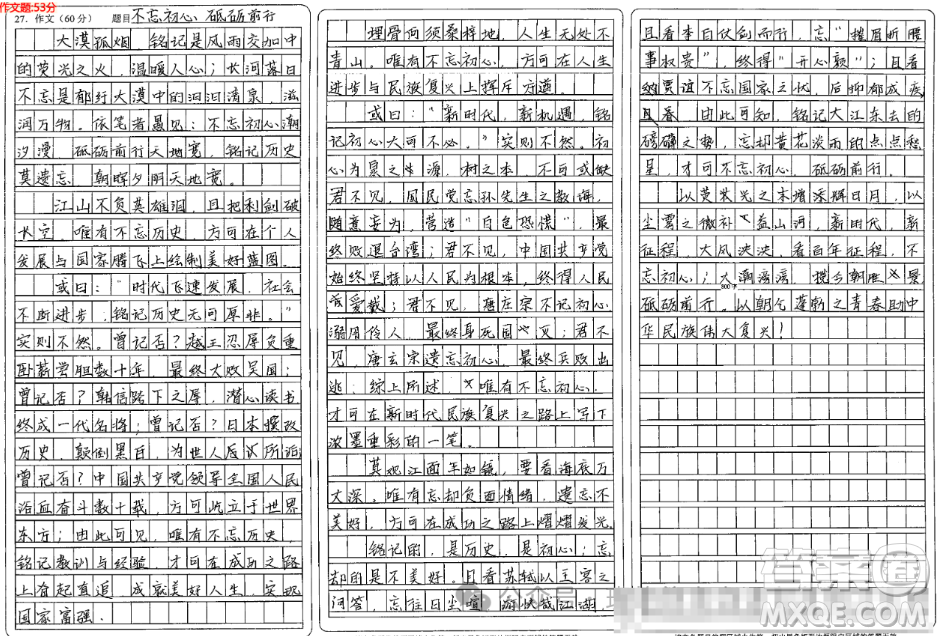 作文题:53分
27. 作文(60分) 题目 不忘初心 砥砺前行
大漠孤烟,铭记是风雨交加中
的荧光之火,温暖人心;长河落日
不忘是郁纡大漠中的汩汩清泉,滋
润万物。依笔者愚见:不忘初心潮
汐漫,砥砺前行天地宽,铭记历史
莫遗忘,朝晖夕阴天地宽。
江山不负英雄泪,且把利剑破
长空。唯有不忘历史,方可在个人
发展与国家腾飞上绘制美好蓝图。
或曰:“时代飞速发展,社会
不断进步,铭记历史无可厚非。”
实则不然。曾记否?越王忍辱负重
卧薪尝胆数十年,最终大败吴国;
曾记否?韩信胯下之辱,潜心读书
终成一代名将;曾记否?日本篡改
历史,颠倒黑白,为世人反议所诟
曾记否?中国共产党领导全国人民
浴血奋斗数十载,方可屹立于世界
东方;由此可见,唯有不忘历史,
铭记教训与经验,才可在成功之路
上奋起直追,成就美好人生,实现
国家富强。
埋骨何须桑梓地,人生无处不
青山。唯有不忘初心,方可在人生
进步与民族复兴上挥斥方遒。
或曰:“新时代,新机遇,铭
记初心大可不必。”实则不然。初
心为泉之源,树之本,不可或缺
君不见,国民党忘孙先生之教诲,
随意妄为,营造“白色恐慌”,最
终败退台湾;君不见,中国共产党
始终坚持以人民为根本,终得人民
爱戴;君不见,唐庄宗不记初心
溺用伶人,最终身死国灭;君不
见,唐玄宗遗忘初心,最终兵败出
逃;综上所述,唯有不忘初心,
才可在新时代民族复兴之路上写下
浓墨重彩的一笔。
莫观江面平如镜,要看海底万
丈深。唯有忘却负面情绪,遗忘不
美好,方可在成功之路上熠熠发光
铭记的,是历史,是初心;忘
却的是不美好。且看苏轼以主客之
问答,忘往日尘喧,游快哉江湖,
且看李白仗剑而行,忘“摧眉折腰
事权贵”,终得“开心颜”;且看
贾谊不忘国家之忧,后抑郁成疾
且春,由此可知,铭记大江东去的
磅礴之势,忘却黄花淡雨的点点稀
星,才可不忘初心,砥砺前行。
以荧荧光之末增添辉日月,以
尘雾之微补益山河,新时代,新
征程,大风泱泱,看百年征程,不
忘初心;大潮滂滂,揽今朝胜景
砥砺前行。以朝气蓬勃之青春助中
华民族伟大复兴!
800字
答案圈
公众号